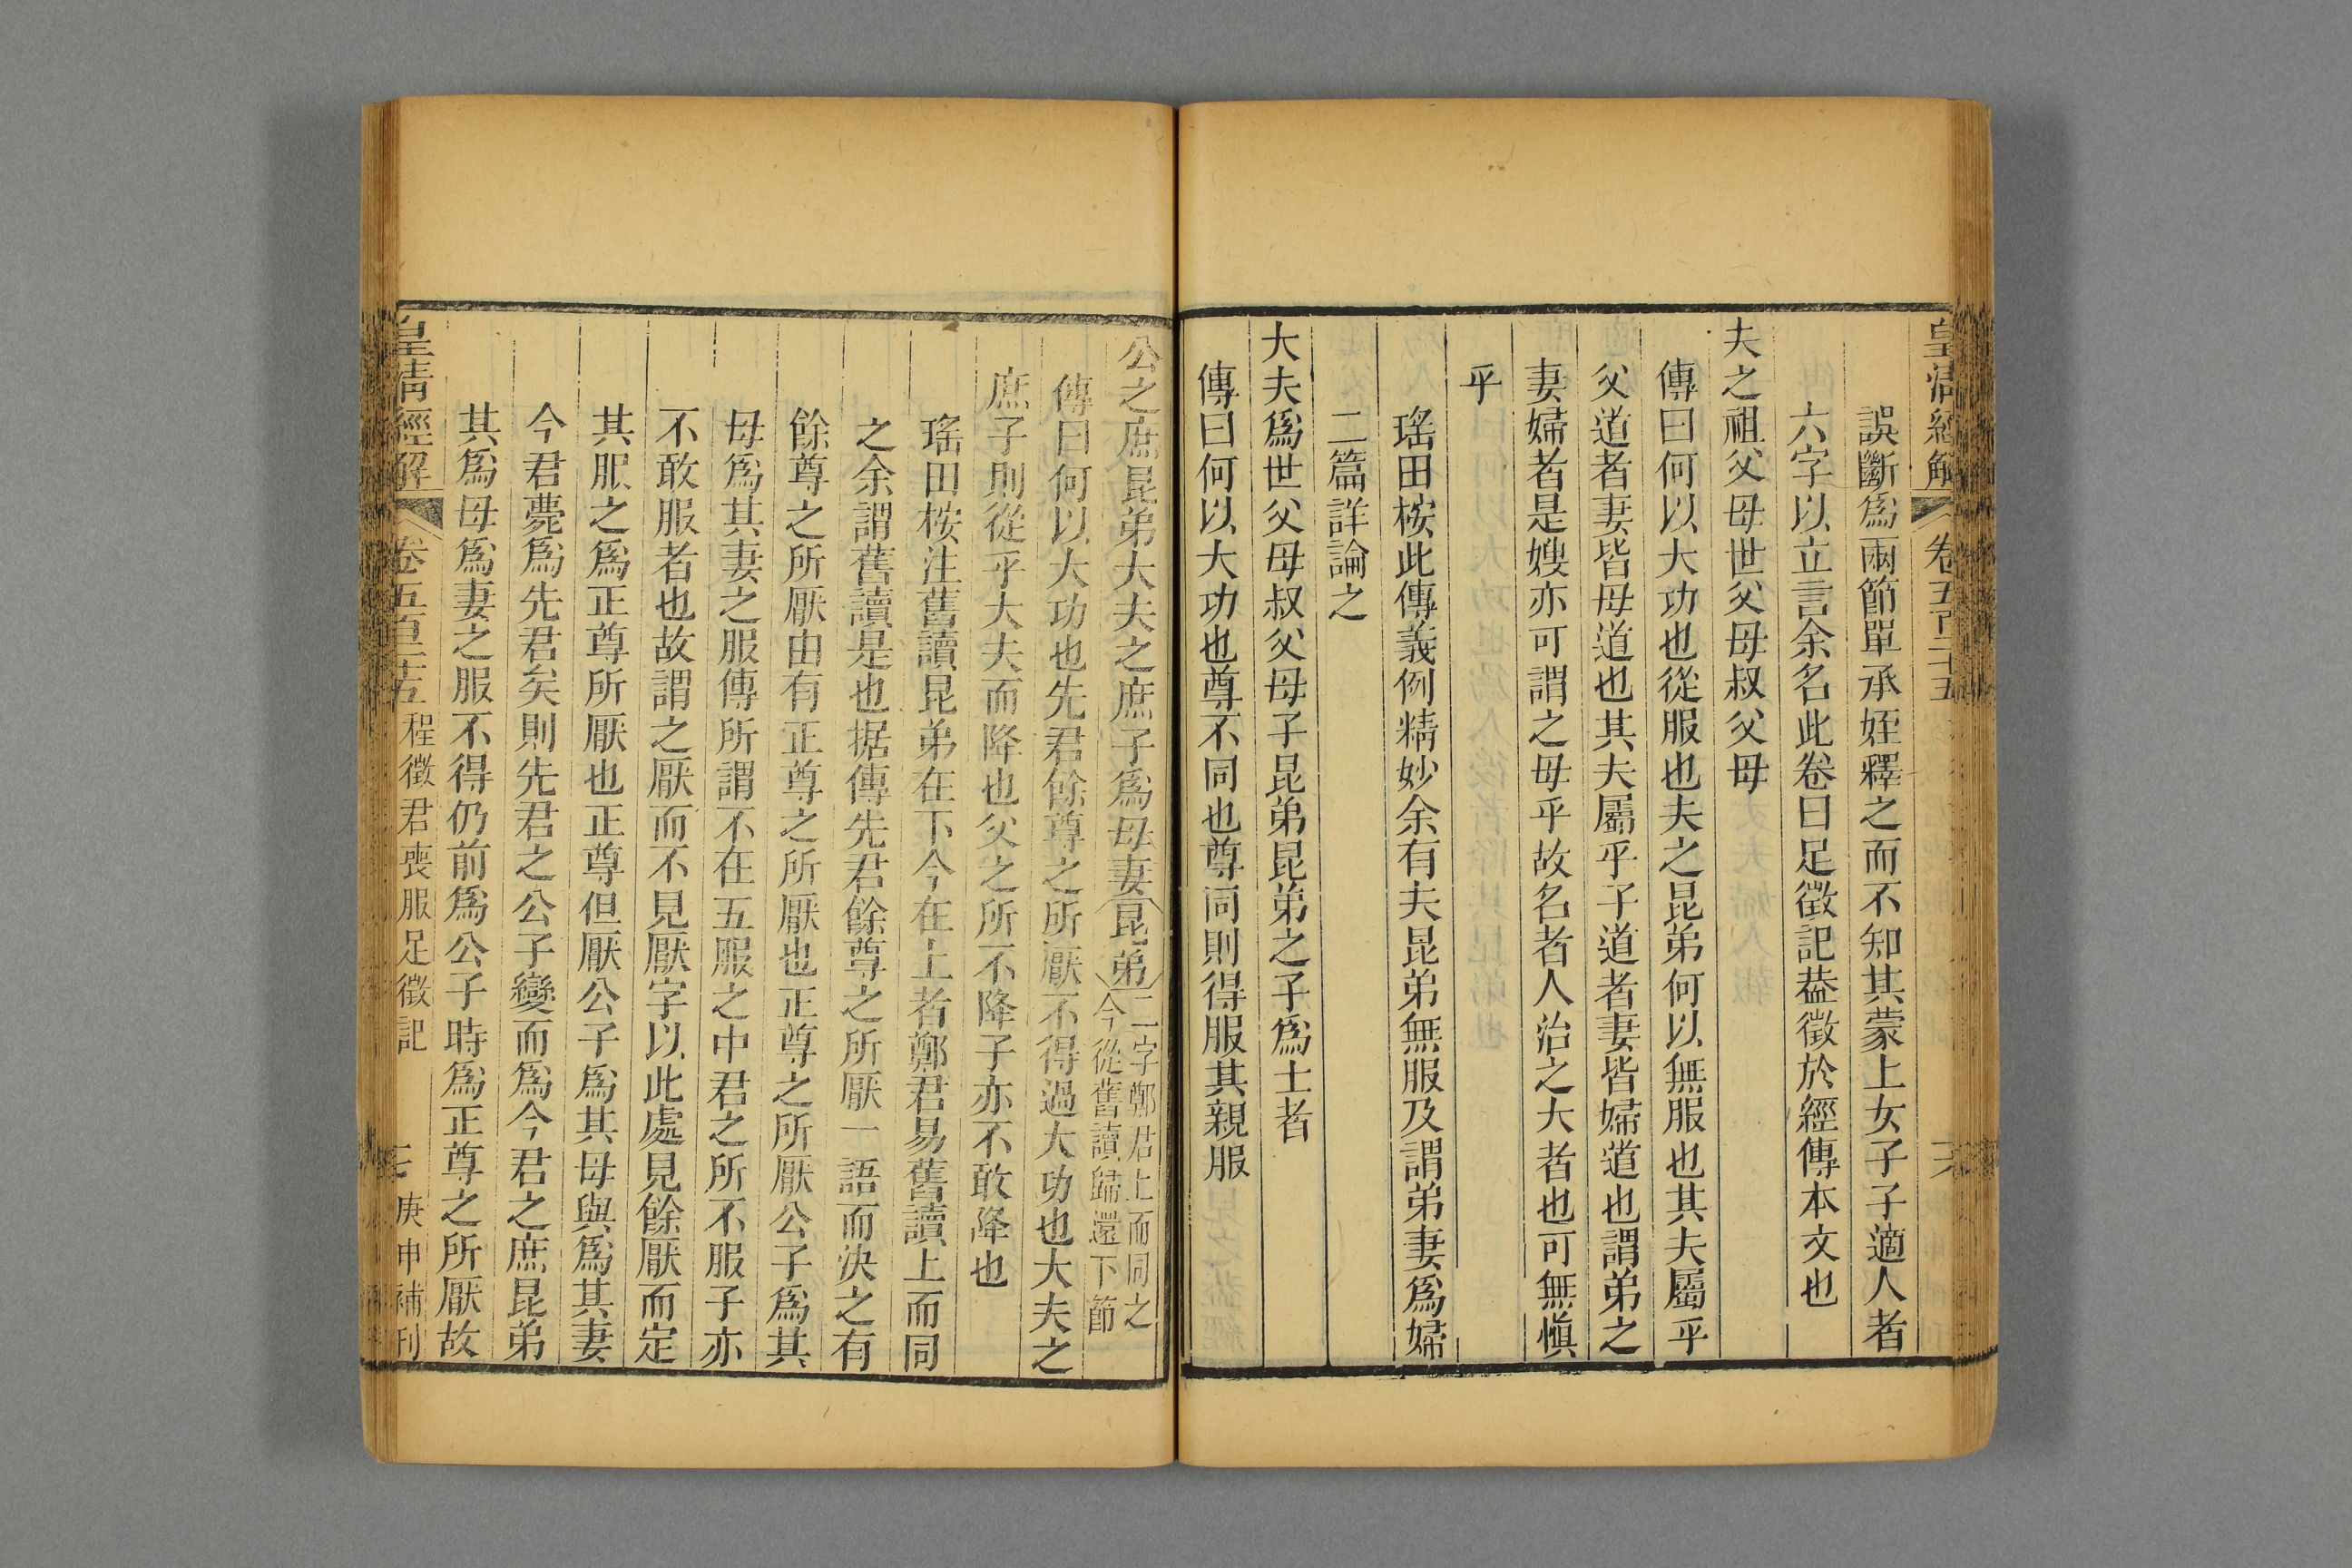 皇清經解
卷五百二十五
誤斷爲兩節單承姪釋之而不知其蒙上女子子適人者
六字以立言余名此卷曰足徵記葢徵於經傳本文也
夫之祖父母世父母叔父母
傳曰何以大功也從服也夫之昆弟何以無服也其夫屬乎
父道者妻皆母道也其夫屬乎子道者妻皆婦道也謂弟之
妻婦者是嫂亦可謂之母乎故名者人治之大者也可無愼
乎
瑤田桉此傳義例精妙余有夫昆弟無服及謂弟妻爲婦
二篇詳論之
大夫爲世父母叔父母子昆弟昆弟之子爲士者
傳曰何以大功也尊不同也尊同則得服其親服
公之庶昆弟大夫之庶子爲母妻昆弟二字鄭君上而同之今從舊讀歸還下節
傳曰何以大功也先君餘尊之所厭不得過大功也大夫之
庶子則從乎大夫而降也父之所不降子亦不敢降也
瑤田桉注舊讀昆弟在下今在上者鄭君易舊讀上而同
之余謂舊讀是也据傳先君餘尊之所厭一語而決之有
餘尊之所厭由有正尊之所厭也正尊之所厭公子爲其
母爲其妻之服傳所謂不在五服之中君之所不服子亦
不敢服者也故謂之厭而不見厭字以此處見餘厭而定
其服之爲正尊所厭也正尊但厭公子爲其母與爲其妻
今君薨爲先君矣則先君之公子變而爲今君之庶昆弟
其爲母爲妻之服不得仍前爲公子時爲正尊之所厭故
皇清經解
卷五百二十五
程徵君喪服足徵記
庚申補刊